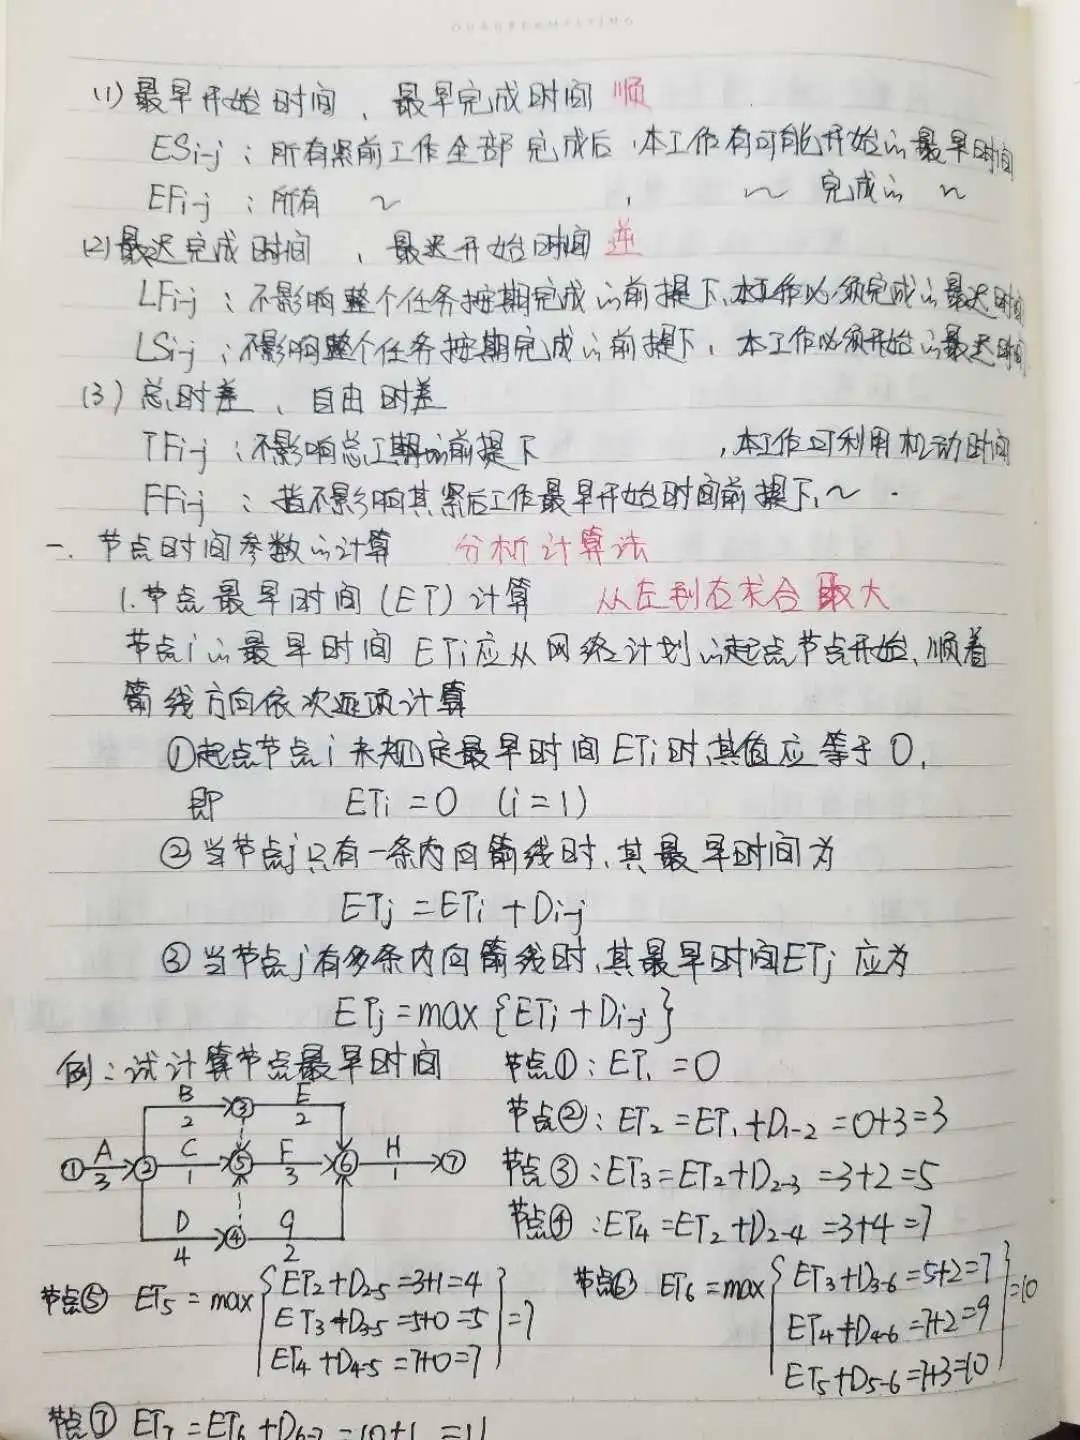 (1) 最早开始时间、最早完成时间 顺
ESi-j：所有紧前工作全部完成后，本工作有可能开始的最早时间
EFi-j：所有 ~ ， ~ 完成的 ~
(2) 最迟完成时间、最迟开始时间 逆
LFi-j：不影响整个任务按期完成的前提下，本工作必须完成的最迟时间
LSi-j：不影响整个任务按期完成的前提下，本工作必须开始的最迟时间
(3) 总时差、自由时差
TFi-j：不影响总工期的前提下 ，本工作可利用机动时间
FFi-j：指不影响其紧后工作最早开始时间前提下，~ .
一. 节点时间参数的计算 分析计算法
1. 节点最早时间(ET)计算 从左到右求合取大
节点i的最早时间ETi应从网络计划的起点节点开始，顺着
箭线方向依次逐项计算
①起点节点i未规定最早时间ETi时，其值应等于0，
即 ETi=0 (i=1)
②当节点j只有一条内向箭线时，其最早时间为
ETj=ETi+Di-j
③当节点j有多条内向箭线时，其最早时间ETj应为
ETj=max{ETi+Di-j}
例：试计算节点最早时间 节点①：ET1=0
B ③ E
2 2
节点②：ET2=ET1+D1-2=0+3=3
① A ② C ⑤ F ⑥ H ⑦
3 1 3 1
节点③：ET3=ET2+D2-3=3+2=5
D ④ G
4 2
节点④：ET4=ET2+D2-4=3+4=7
节点⑤ ET5=max{ET2+D2-5=3+1=4
ET3+D3-5=5+0=5
ET4+D4-5=7+0=7}=7
节点⑥ ET6=max{ET3+D3-6=5+2=7
ET4+D4-6=7+2=9
ET5+D5-6=7+3=10}=10
节点⑦ ET7=ET6+D6-7=10+1=11